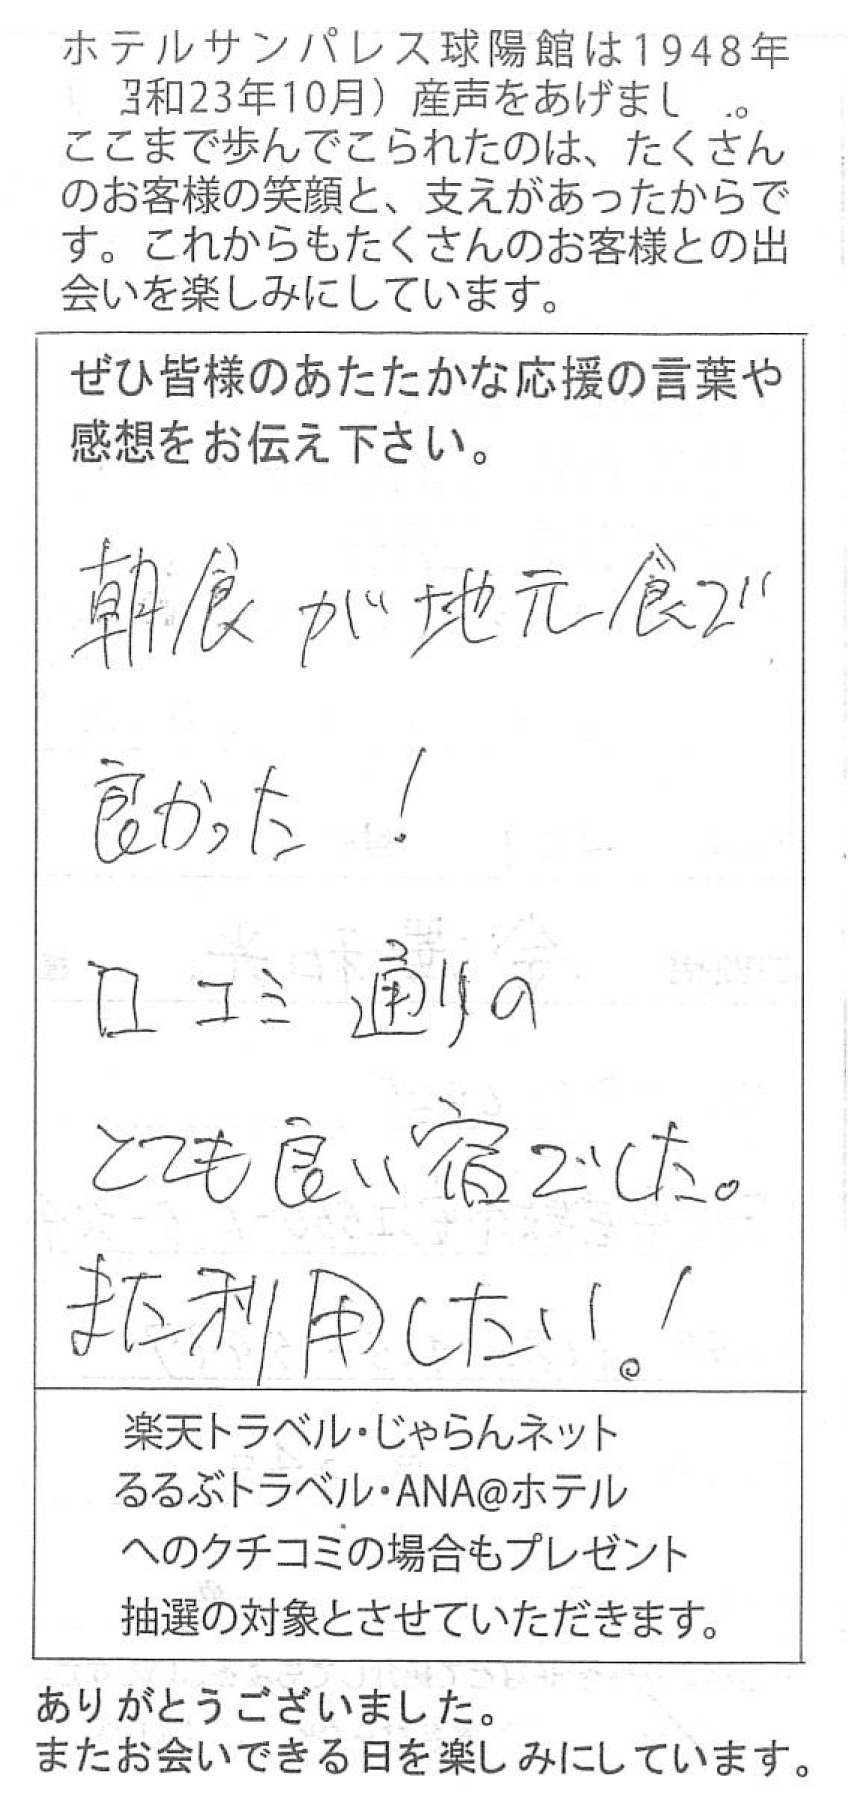 ホテルサンパレス球陽館は1948年
昭和23年10月）産声をあげまし 。
ここまで歩んでこられたのは、たくさん
のお客様の笑顔と、支えがあったからで
す。これからもたくさんのお客様との出
会いを楽しみにしています。
ぜひ皆様のあたたかな応援の言葉や
感想をお伝え下さい。
朝食が地元食で
良かった！
口コミ通りの
とても良い宿でした。
また利用したい。！
楽天トラベル・じゃらんネット
るるぶトラベル・ANA@ホテル
へのクチコミの場合もプレゼント
抽選の対象とさせていただきます。
ありがとうございました。
またお会いできる日を楽しみにしています。